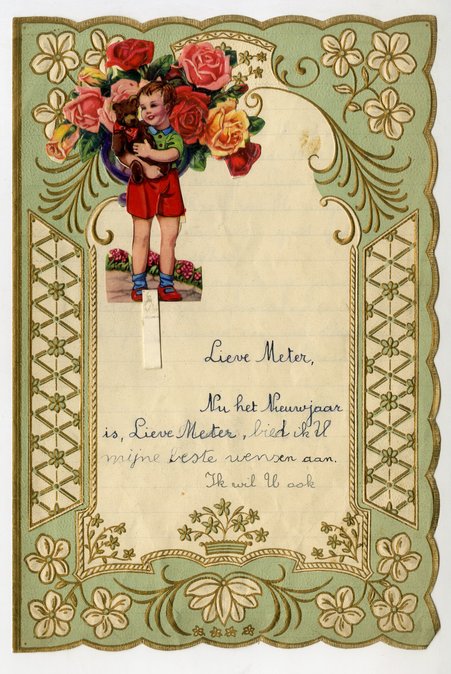 Lieve Meter,
Nu het Nieuwjaar
is, Lieve Meter, bied ik U
mijne beste wensen aan.
Ik wil U ook